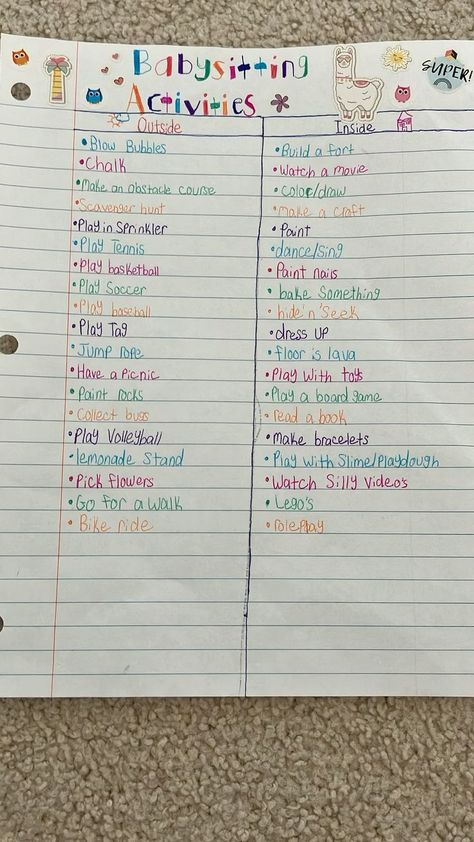 Babysitting
SUPER!
Activities
Outside
Inside
• Blow Bubbles
• Chalk
• Make an obstacle course
• Scavenger hunt
• Play in Sprinkler
• Play Tennis
• Play basketball
• Play Soccer
• Play baseball
• Play Tag
• Jump rope
• Have a Picnic
• Paint rocks
• Collect bugs
• Play Volleyball
• lemonade Stand
• Pick flowers
• Go for a walk
• Bike ride
• Build a fort
• Watch a movie
• Color/draw
• make a craft
• Paint
• dance/sing
• Paint nails
• bake Something
• hide 'n' Seek
• dress UP
• floor is lava
• Play With toys
• Play a board game
• read a book
• make bracelets
• Play with Slime/Playdough
• Watch Silly Video's
• Lego's
• role play